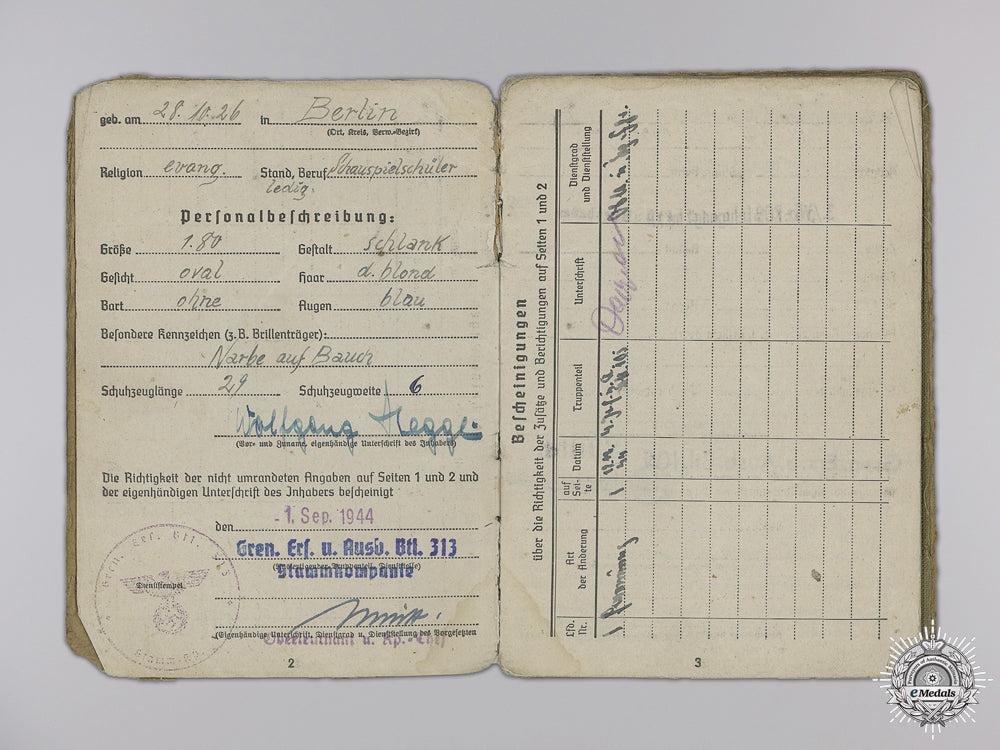 geb. am 28.10.26 in Berlin
(Ort, Kreis, Verw.-Bezirk)
Religion evang. Stand, Beruf Schauspielschüler
ledig.
Personalbeschreibung:
Größe 1.80 Gestalt schlank
Gesicht oval Haar d. blond
Bart ohne Augen blau
Besondere Kennzeichen (z. B. Brillenträger):
Narbe auf Bauch
Schuhzeuglänge 29 Schuhzeugweite 6
Wolfgang
(Vor- und Zuname, eigenhändige Unterschrift des Inhabers)
Die Richtigkeit der nicht umrandeten Angaben auf Seiten 1 und 2 und
der eigenhändigen Unterschrift des Inhabers bescheinigt
den -1. Sep. 1944
Gren. Ers. u. Ausb. Btl. 313
Stammkompanie
Dienststempel
(Eigenhändige Unterschrift, Dienstgrad u. Dienststellung des Vorgesetzten
Oberleutnant u. Kp.-Chef
2
Bescheinigungen
über die Richtigkeit der Zusätze und Berichtigungen auf Seiten 1 und 2
Lfd. Nr.
Art der Änderung
auf Sei- te
Datum
Truppenteil
Unterschrift
Dienstgrad und Dienststellung
1
1
3
eMedals